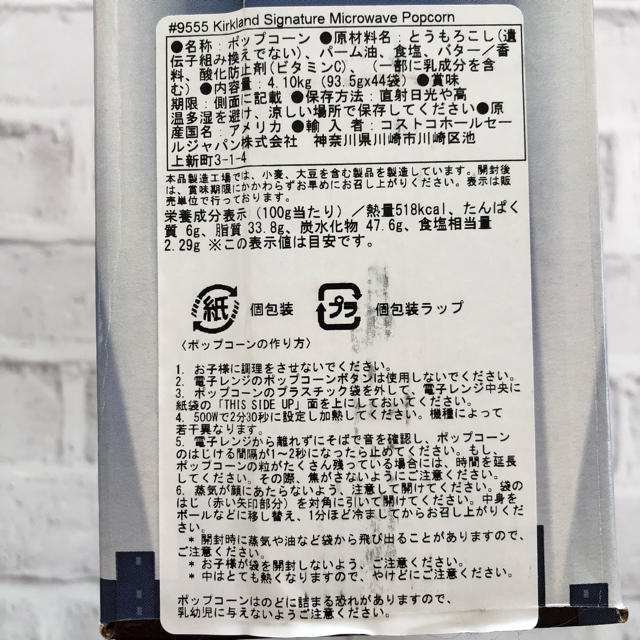 #9555 Kirkland Signature Microwave Popcorn
●名称：ポップコーン ●原材料名：とうもろこし(遺
伝子組み換えでない)、パーム油、食塩、バター／香
料、酸化防止剤(ビタミンC)、(一部に乳成分を含
む) ●内容量：4.10kg (93.5gx44袋) ●賞味
期限：側面に記載 ●保存方法：直射日光や高
温多湿を避け、涼しい場所で保存してください●原
産国名：アメリカ ●輸入者：コストコホールセー
ルジャパン株式会社 神奈川県川崎市川崎区池
上新町3-1-4
本品製造工場では、小麦、大豆を含む製品を製造しています。開封後
は、賞味期限にかかわらずお早めにお召し上がりください。表示は販
売単位で行っております。
栄養成分表示 (100g当たり) ／熱量518kcal、たんぱく
質 6g、脂質 33.8g、炭水化物 47.6g、食塩相当量
2.29g ※この表示値は目安です。
紙 個包装 プラ 個包装ラップ
〈ポップコーンの作り方〉
1. お子様に調理をさせないでください。
2. 電子レンジのポップコーンボタンは使用しないでください。
3. ポップコーンのプラスチック袋を外して、電子レンジ中央に
紙袋の「THIS SIDE UP」面を上にしておいてください。
4. 500Wで2分30秒に設定し加熱してください。機種によって
若干異なります。
5. 電子レンジから離れずにそばで音を確認し、ポップコーン
のはじける間隔が1～2秒になったら止めてください。もし、
ポップコーンの粒がたくさん残っている場合には、時間を延長
してください。その際、焦がさないようにご注意ください。
6. 蒸気が顔にあたらないよう、注意して開けてください。袋の
はじ（赤い矢印部分）を対角に引いて開けてください。中身を
ボールなどに移し替え、1分ほど冷ましてからお召し上がりくだ
さい。
* 開封時に蒸気や油など袋から飛び出ることがありますので、
ご注意ください。
* お子様が袋を開封しないよう、ご注意ください。
* 中はとても熱くなりますので、やけどにご注意ください。
ポップコーンはのどに詰まる恐れがありますので、
乳幼児に与えないようご注意ください。